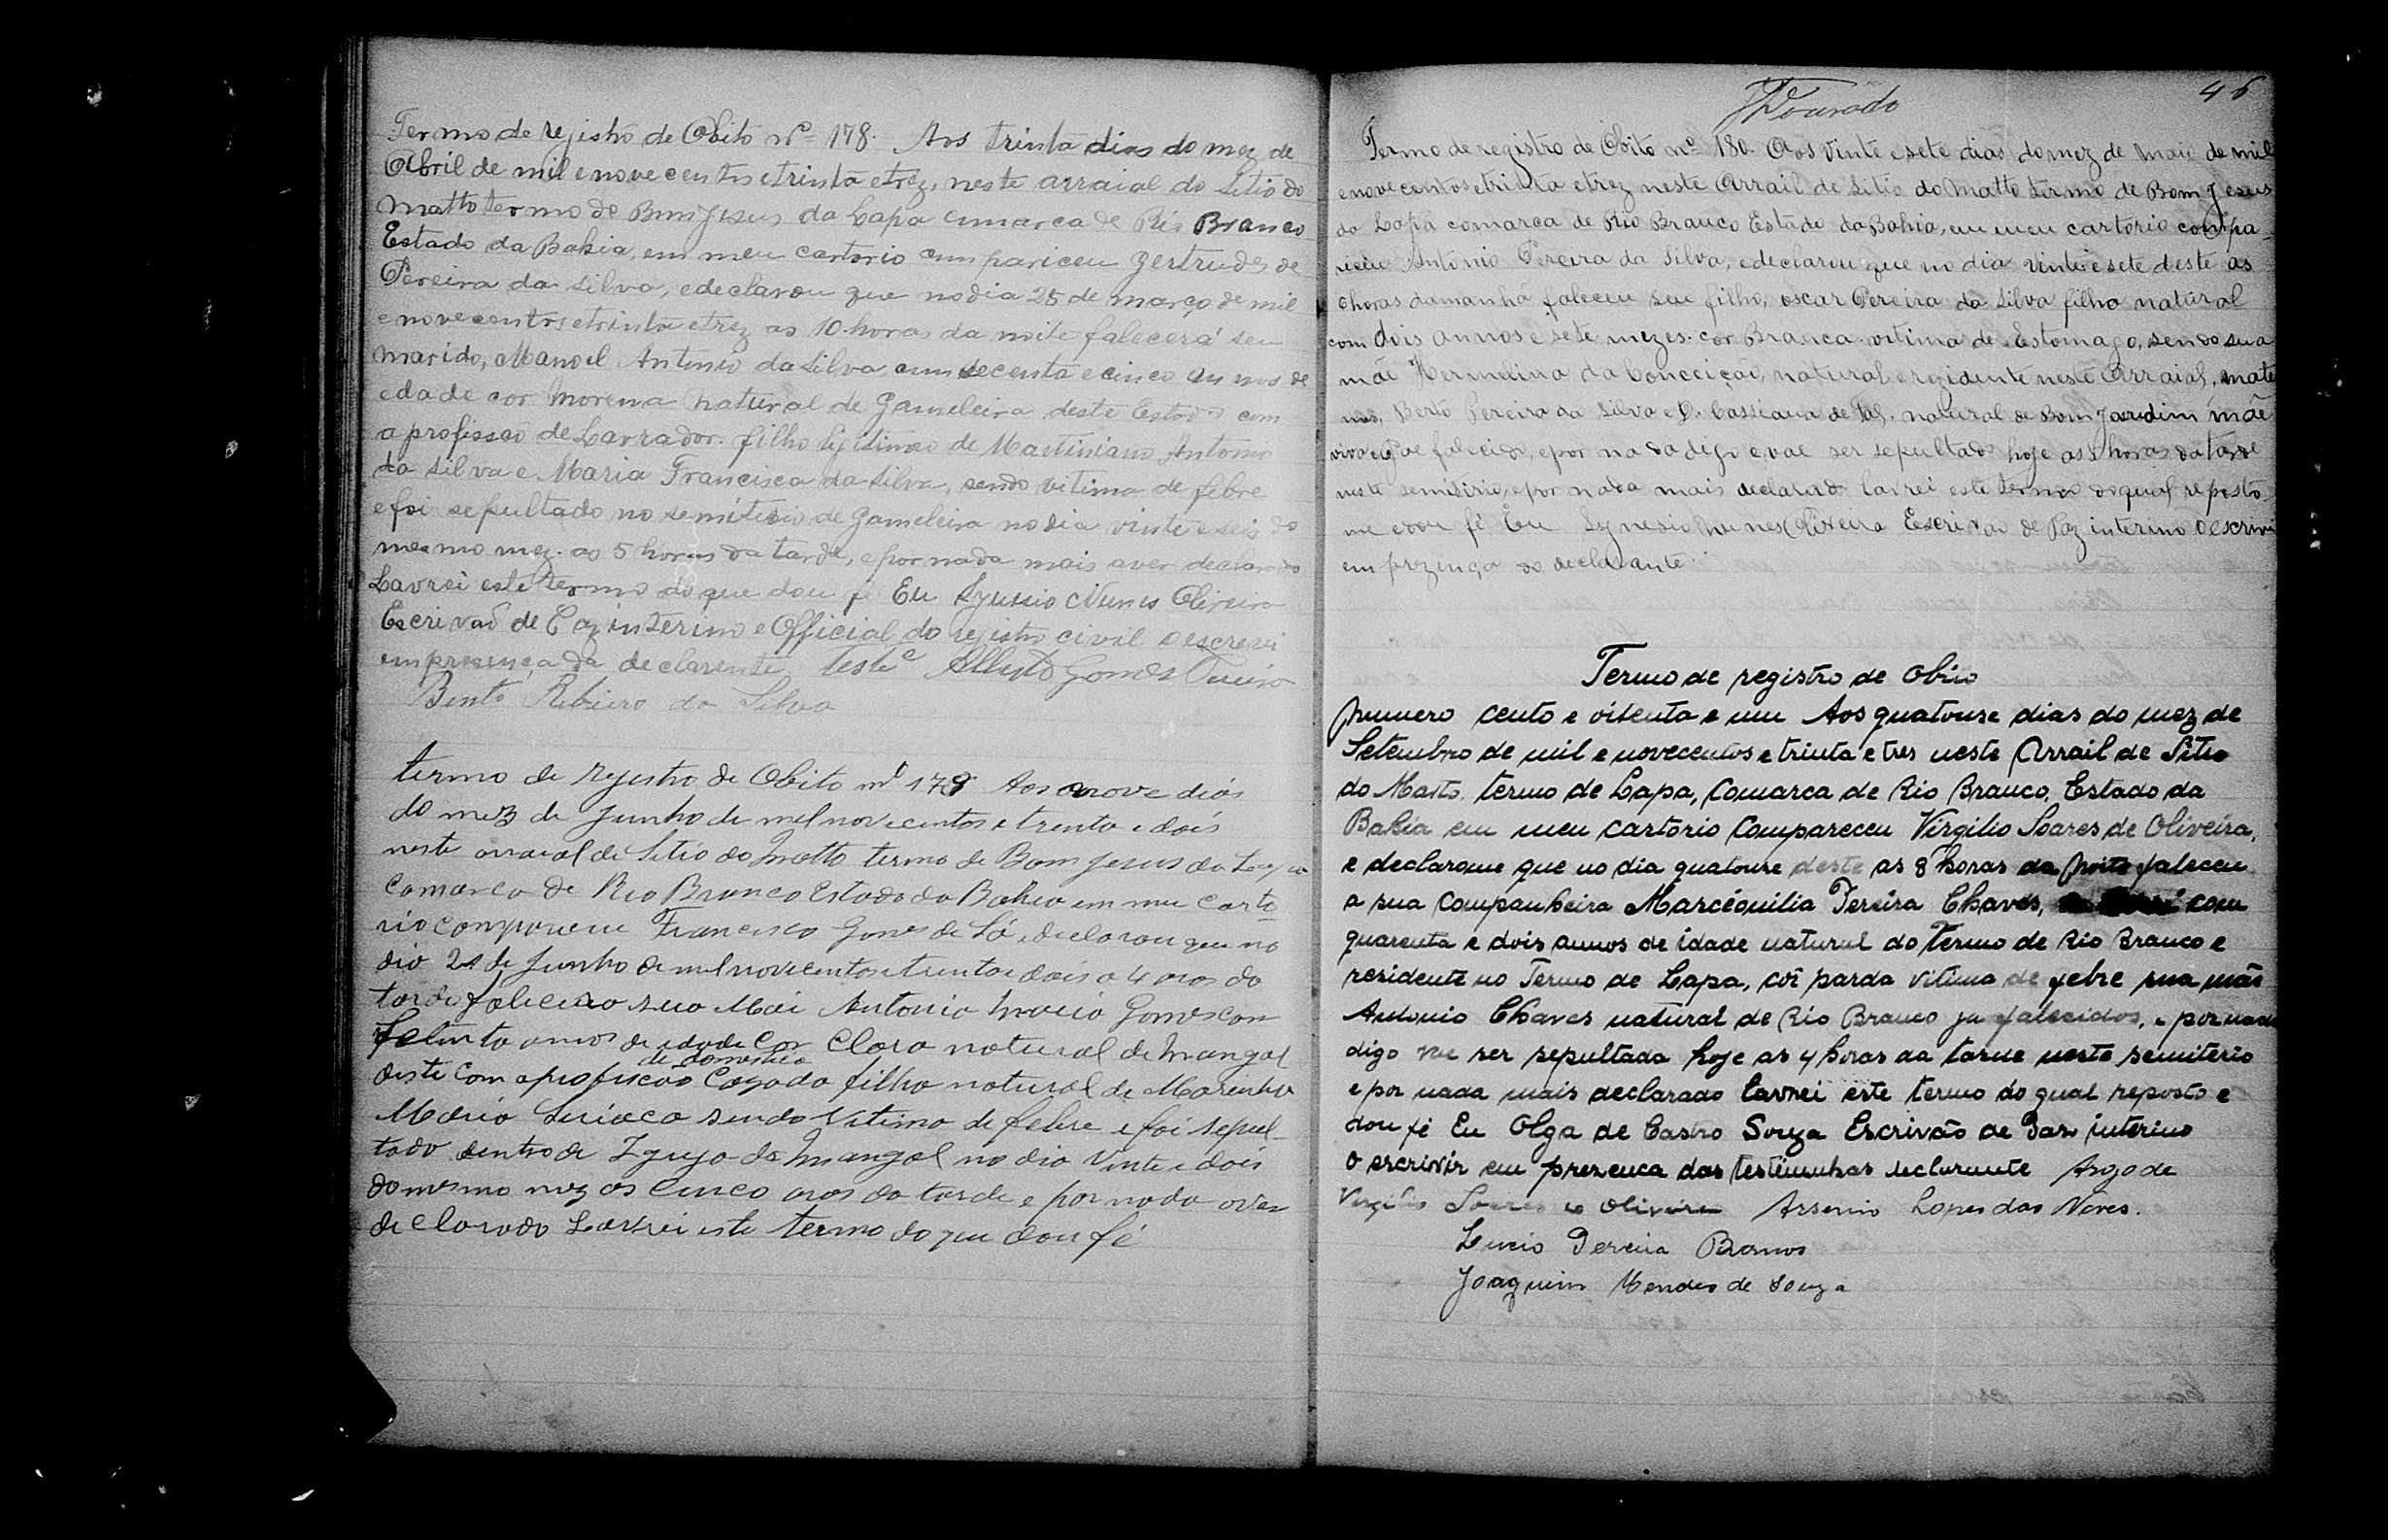 Termo de rejistro de Obito nº 178. Aos trinta dias do mez de
Abril de mil e novecentos e trinta e trez, neste arraial do Sitio do
Matto termo de Bom Jesus da Lapa cumarca de Rio Branco
Estado da Bahia, em meu cartorio cumpariceu Gertrudes de
Pereira da Silva, e declarou que no dia 25 de março de mil
e novecentos e trinta e trez as 10 horas da noite falecerá seu
marido, Manoel Antonio da Silva, cum secenta e cinco annos de
edade cor morena natural de Gameleira deste Estado com
a profissaõ de Lavrador. filho legitimo de Martiniano Antonio
da Silva e Maria Francisca da Silva, sendo vitima de febre
e foi sepultado no semiterio de Gameleira no dia vinte e seis do
mesmo mez. as 5 horas da tarde, e por nada mais aver declarado
Lavrei este termo do que dou fé Eu Synesio Nunes Oliveira
Escrivaõ de Paz interino e Official do registro civil o escrevi
em presença da declarente. Testª Gomes
Bento Ribeiro da Silva
termo de rejistro de Obito nº 179 Aos nove dias
do mez de Junho de mil novecentos e trenta e dois
neste arraial de Sitio do Matto termo de Bom Jesus da Lapa
Comarca de Rio Branco Estado da Bahia em meu Carto
rio compareceu Francisco Gomes de Sá, e declarou que no
dia 21 de Junho de mil novecentos e trenta e dois a 4 oras da
tarde falecera sua Mãi Antonia Maria Gomes con
annos de edade Cor Clara natural de Mangal
de domestica
deste Com a profição Cazada filha natural de Marinha
Maria Siriaca sendo Vitima de febre e foi sepul-
tado dentro da Igreja do Mangal no dia Vinte e dois
do mesmo mez as Cinco oras da tarde e por nada aver
declarado Lavrei este termo do que dou fé
46
JDourado
Termo de registro de Obito nº 180. Aos vinte e sete dias do mez de maio de mil
e novecentos e trinta e trez neste Arrail de Sitio do Matto termo de Bom Jesus
da Lapa comarca de Rio Branco Estado da Bahia, em meu cartorio compa-
receu Antonio Pereira da Silva, e declarou que no dia vinte e sete deste as
horas da manhã faleceu seu filho, oscar Pereira da Silva filho natural
com dois annos e sete mezes. cor Branca. vitima de Estomago, sendo sua
mãe Hermelina da Conceição, natural e rezidente neste Arraial, mater
nos, Berto Pereira da Silva e D. Cassiana de Tal. natural de Bom Jardim mãe
viva e Pae falecido, e por nada digo e vae ser sepultado hoje as horas da tarde
neste semitirio, e por nada mais declarado lavrei este termo do qual reposto
me e dou fé Eu Synesio Nunes Oliveira Escrivão de Paz interino o escrivi
em prezença do declarante.
Termo de registro de Obito
numero cento e oitenta e um Aos quatorze dias do mez de
Setembro de mil e novecentos e trinta e tres neste Arrail de Sitio
do Matto. termo de Lapa, Comarca de Rio Branco, Estado da
Bahia em meu cartorio Compareceu Virgilio Soares de Oliveira,
e declarou-me que no dia quatorze deste as 8 horas da noite faleceu
a sua Companheira Marcéonilia Pereira Chaves, com
quarenta e dois annos de idade natural do Termo de Rio Branco e
residente no Termo de Lapa, côr parda vitima de febre sua mãe
Antonio Chaves natural de Rio Branco ja falecidos, e por nada
digo vae ser sepultada hoje as 4 horas da tarde neste semiterio
e por nada mais declarado lavrei este termo do qual reposto e
dou fé Eu Olga de Castro Souza Escrivão de Paz interino
o escrivir em prezenca das testimunhas declarante Arogo de
Virgilio Soares de Oliveira Arsenio Lopes das Neves.
Lucio Pereira Ramos
Joaquim Mendes de Souza